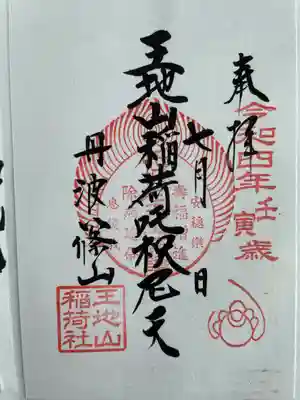 奉拝
令和四年壬寅歳
七月 日
王地山稲荷呪枳尼天
丹波篠山
王地山
稲荷社